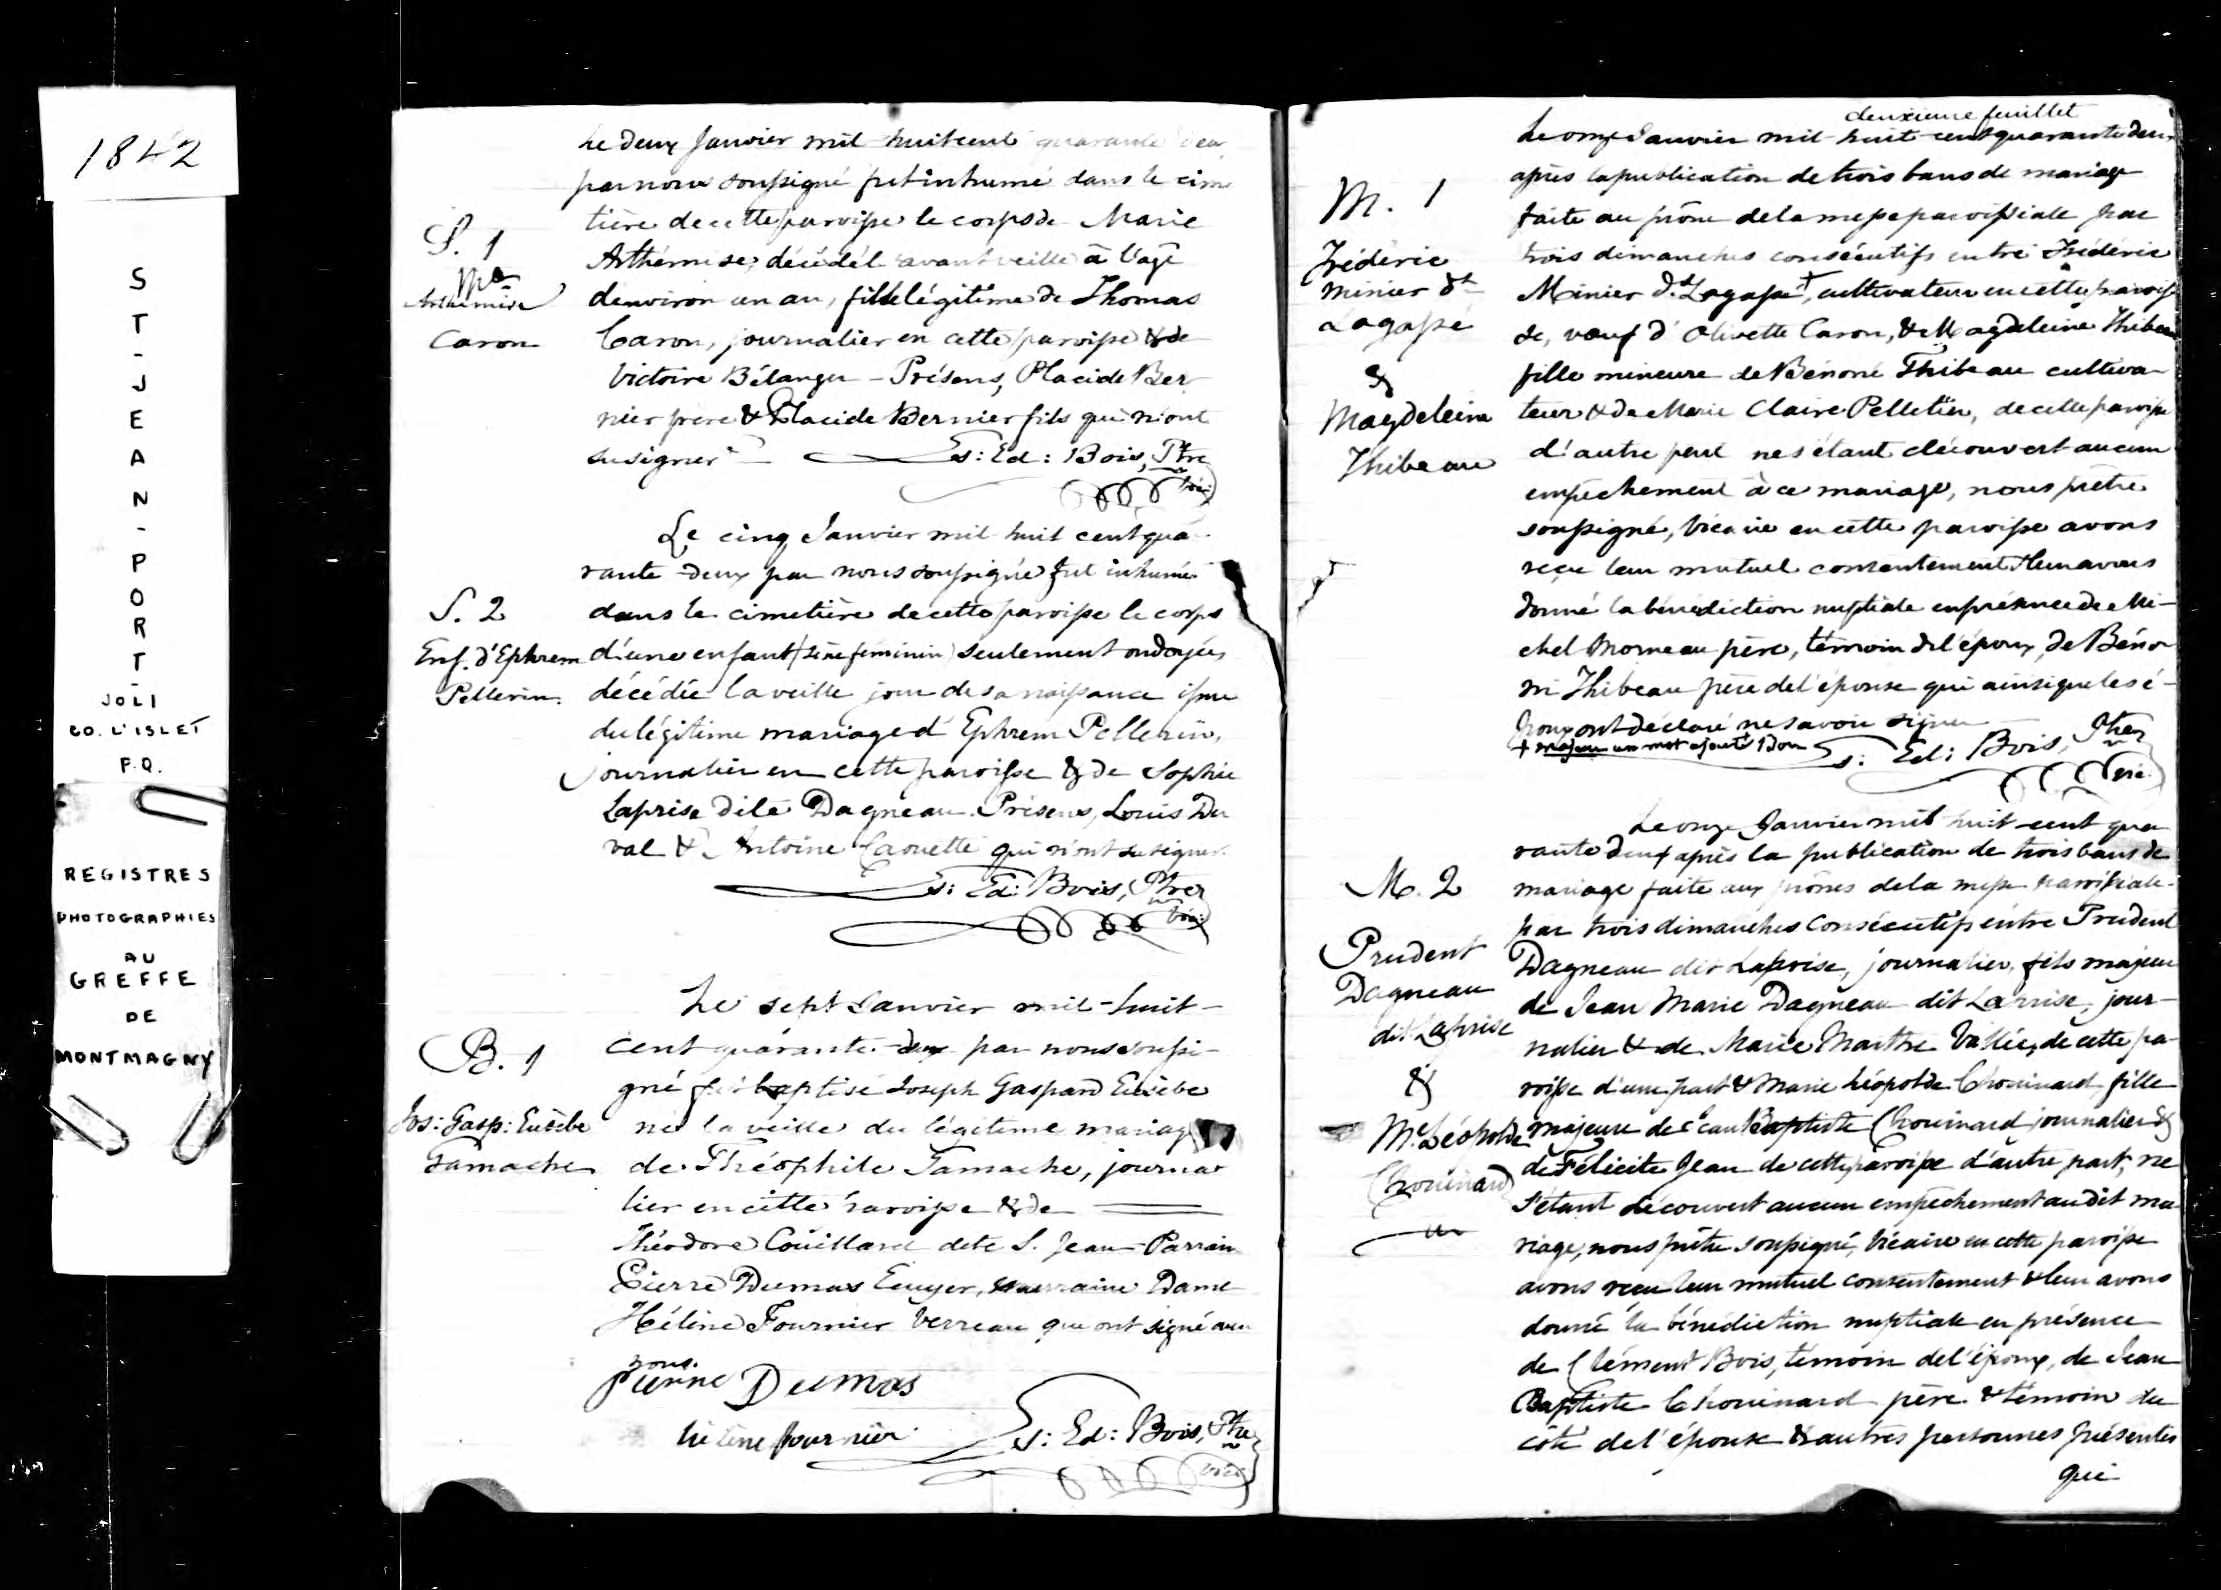 1842
ST-JEAN-PORT-
JOLI
CO. L'ISLET
P.Q.
REGISTRES
PHOTOGRAPHIES
AU
GREFFE
DE
MONTMAGNY
Le deux Janvier mil-huit cent quarante deux
par nous soussigné fut inhumé dans le cime
tière de cette paroisse le corps de Marie
S. 1
Mie
Arthémise
Caron
Arthémise, décédée avant veille à l'age
d'environ un an, fille légitime de Thomas
Caron, journalier en cette paroisse & de
Victoire Bélanger - Présens, Placide Ber
nier père & Placide Bernier fils qui n'ont
su signer
Ls: Ed: Bois, Ptre
Vic:
Le cinq Janvier mil huit cent qua-
rante-deux par nous soussigné fut inhumé
S. 2
Enf. d'Ephrem
Pellerin
dans le cimetière de cette paroisse le corps
d'une enfant (sexe féminin) seulement ondoyée,
décédée la veille jour de sa naissance issue
du légitime mariage d'Ephrem Pellerin,
journalier en cette paroisse & de Sophie
Laprise dite Dagneau. Présens, Louis Du
val & Antoine Caouette qui n'ont su signer.
Ls: Ed: Bois, Ptre
Vic:
Le sept Janvier mil-huit-
B. 1
Jos: Gasp: Eusèbe
Gamache
cent quarante-deux par nous soussi-
gné fut baptisé Joseph Gaspard Eusèbe
né la veille du légitime mariage
de Théophile Gamache, journa
lier en cette paroisse & de
Théodore Couillard dite S. Jean - Parrain
Pierre Dumas Ecuyer, marraine Dame
Hélène Fournier Verreau qui ont signé avec
nous.
Pierre Dumas
hélène fournier
Ls: Ed: Bois, Ptre
Vic:
deuxième feuillet
Le onze Janvier mil-huit-cent quarante deux
après la publication de trois bans de mariage
M. 1
Frédéric
Minier dt
Lagassé
&
Magdeleine
Thibeau
faite au prône de la messe paroissiale par
trois dimanches consécutifs entre Frédéric
Minier dt Lagassé+, cultivateur en cette parois
se, veuf d'Olivette Caron, & Magdeleine Thibeau
fille mineure de Bénoni Thibeau cultiva-
teur & de Marie Claire Pelletier, de cette paroisse
d'autre part ne s'étant découvert aucun
empêchement à ce mariage, nous prêtre
soussigné, Vicaire en cette paroisse avons
reçu leur mutuel consentement & leur avons
donné la bénédiction nuptiale en présence de Mi-
chel Morneau père, témoin de l'époux, de Béno
ni Thibeau père de l'épouse qui ainsi que les é-
poux ont déclaré ne savoir signer
+ majeur un mot ajouté Bon
Ls: Ed: Bois, Ptre
Vic:
Le onze Janvier mil huit-cent qua
rante deux après la publication de trois bans de
M. 2
Prudent
Dagneau
dit Laprise
&
Mie Léopolde
Chouinard
mariage faite aux prônes de la messe paroissiale
par trois dimanches consécutifs entre Prudent
Dagneau dit Laprise, journalier, fils majeur
de Jean Marie Dagneau dit Laprise, jour-
nalier & de Marie Marthe Vallée, de cette pa-
roisse d'une part & Marie Léopolde Chouinard fille
majeure de Jean Baptiste Chouinard journalier &
de Félicité Jean de cette paroisse d'autre part, ne
s'étant découvert aucun empêchement audit ma-
riage, nous prêtre soussigné, Vicaire en cette paroisse
avons reçu leur mutuel consentement & leur avons
donné la bénédiction nuptiale en présence
de Clément Bois, témoin de l'époux, de Jean
Baptiste Chouinard père & témoin du
côté de l'épouse & autres personnes présentes
qui